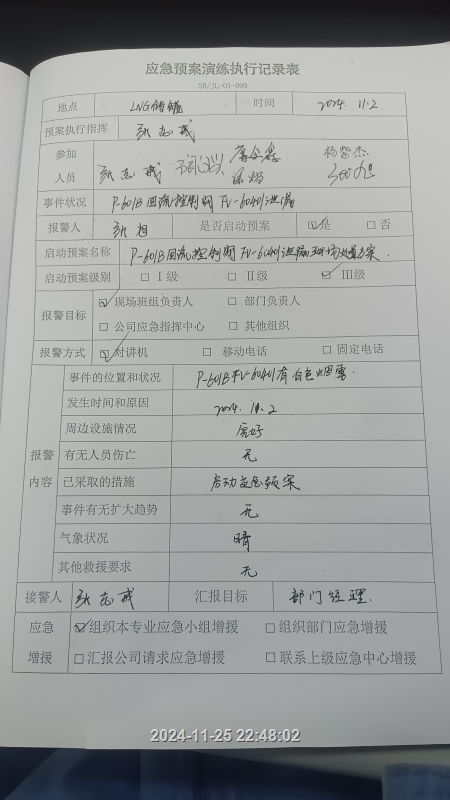 应急预案演练执行记录表
SR/JL-01-099
地点 LNG储罐 时间 2024.11.2
预案执行指挥 张志成
参加人员 张志成 杨紫杰
事件状况 P-601B回流控制阀 FV-60401泄漏
报警人 张旭 是否启动预案 ☑是 □否
启动预案名称 P-601B回流控制阀 FV-60401泄漏现场处置方案.
启动预案级别 □Ⅰ级 □Ⅱ级 ☑Ⅲ级
报警目标 ☑现场班组负责人 □部门负责人
□公司应急指挥中心 □其他组织
报警方式 ☑对讲机 □移动电话 □固定电话
报警内容
事件的位置和状况 P-601B FV-60401有白色烟雾.
发生时间和原因 2024.11.2
周边设施情况 完好
有无人员伤亡 无
已采取的措施 启动应急预案
事件有无扩大趋势 无
气象状况 晴
其他救援要求 无
接警人 张志成 汇报目标 部门经理.
应急增援 ☑组织本专业应急小组增援 □组织部门应急增援
□汇报公司请求应急增援 □联系上级应急中心增援
2024-11-25 22:48:02